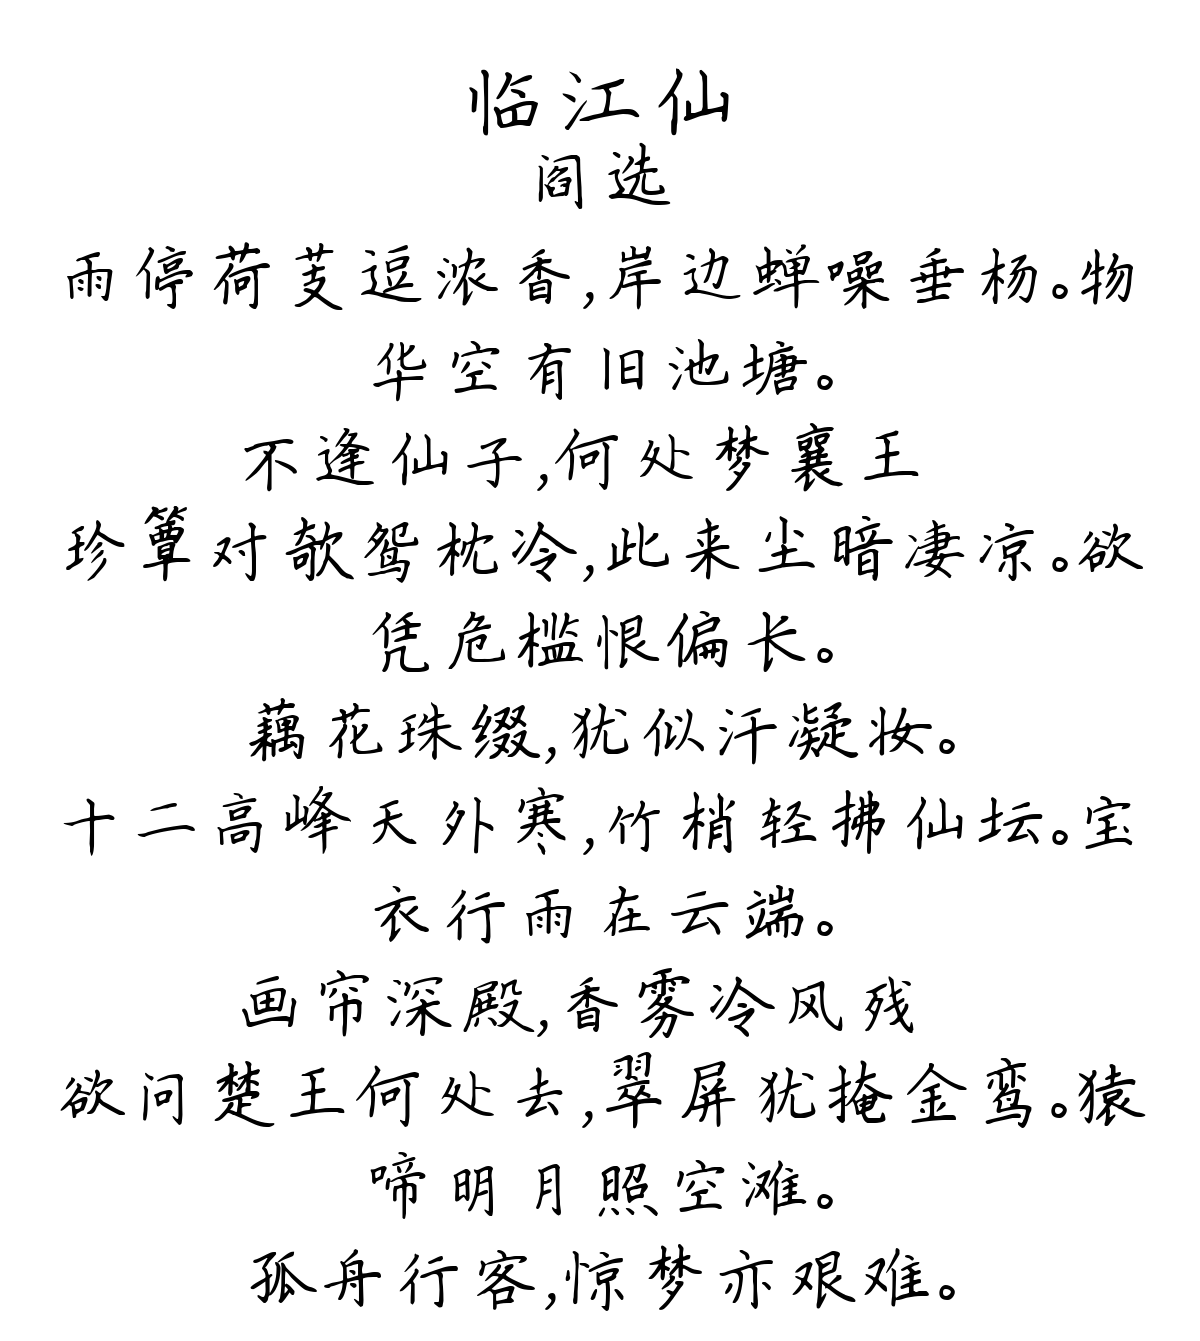 临江仙
阎选
雨停荷芰逗浓香,岸边蝉噪垂杨。物
华空有旧池塘。
不逢仙子,何处梦襄王
珍簟对欹鸳枕冷,此来尘暗凄凉。欲
凭危槛恨偏长。
藕花珠缀,犹似汗凝妆。
十二高峰天外寒,竹梢轻拂仙坛。宝
衣行雨在云端。
画帘深殿,香雾冷风残
欲问楚王何处去,翠屏犹掩金鸾。猿
啼明月照空滩。
孤舟行客,惊梦亦艰难。